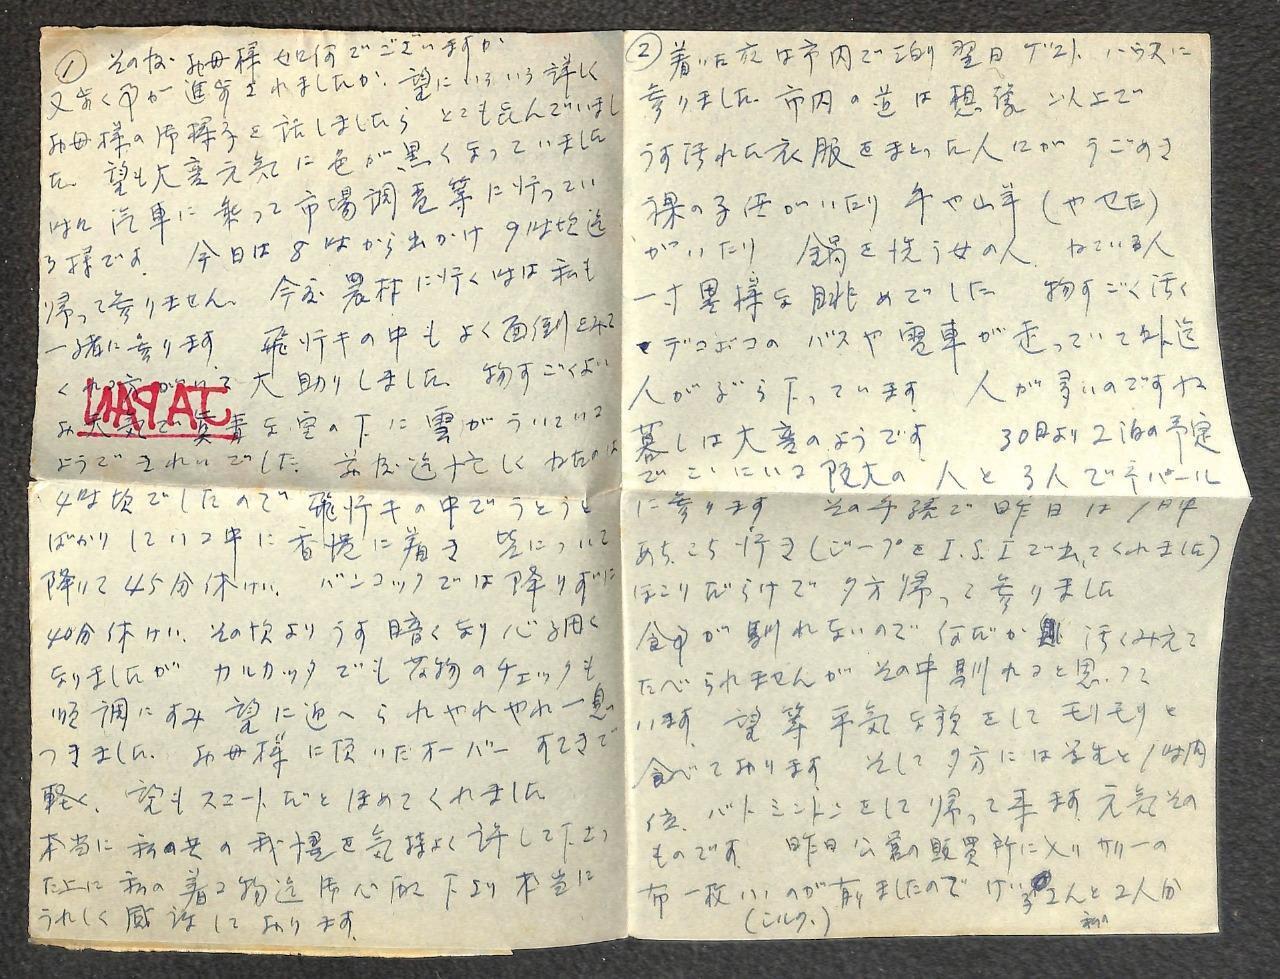 ① その後お母様如何でございますか
又歩く事が進歩されましたか、望にいろいろ詳しく
お母様の御様子を話しましたら とても喜んでいまし
た、望も大変元気に色が黒くなっていました
汽車に乗って市場調査等に行ってい
る様です、今日は8時から出かけ9時頃迄
帰って参りません、今度農村に行く時は私も
一緒に参ります 飛行キの中もよく面倒をみて
くれる方がいて大助りしました、物すごくよい
お天気で真青な空の下に雲がういている
ようできれいでした、前夜迄忙しくねたのは
4時頃でしたので飛行キの中でうとうと
ばかりしている中に香港に着き 皆について
降りて45分休けい、バンコックでは降りずに
40分休けい、その頃よりうす暗くなり心細く
なりましたが カルカッタでも荷物のチェックも
順調にすみ 望に迎へられやれやれ一息
つきました、お母様に頂いたオーバー すてきで
軽く、望もスマートだとほめてくれました
本当に私の我儘を気持よく許して下さっ
た上に私の着る物迄御心配下より本当に
うれしく感謝しております、
JAPAN
② 着いた夜は市内で泊り翌日ゲストハウスに
参りました、市内の道は想像以上で
うす汚れた衣服をまとった人がうごめき
裸の子供がいたり 牛や山羊（やせた）
がいたり 鍋を洗う女の人、ねている人
一寸異様な眺めでした、物すごく汚く
デコボコのバスや電車が走っていて外迄
人がぶら下っています 人が多いのですね
暮しは大変のようです 30日より2泊の予定
でこゝにいる阪大の人と3人でネパール
に参ります その手続で昨日は1日中
あちこち行き（ジープをI.S.Iで出してくれました）
ほこりだらけで夕方帰って参りました
食事が馴れないので何だか汚くみえて
たべられませんがその中馴れると思って
います、望等平気な顔をしてモリモリと
食べております そして夕方には学生と1時間
位、バトミントンをして帰って来ます、元気その
ものです 昨日公営の販買所に入りサリーの
布一枚いいのが有りましたので げ子さんと2人分
（シルク、） 私の